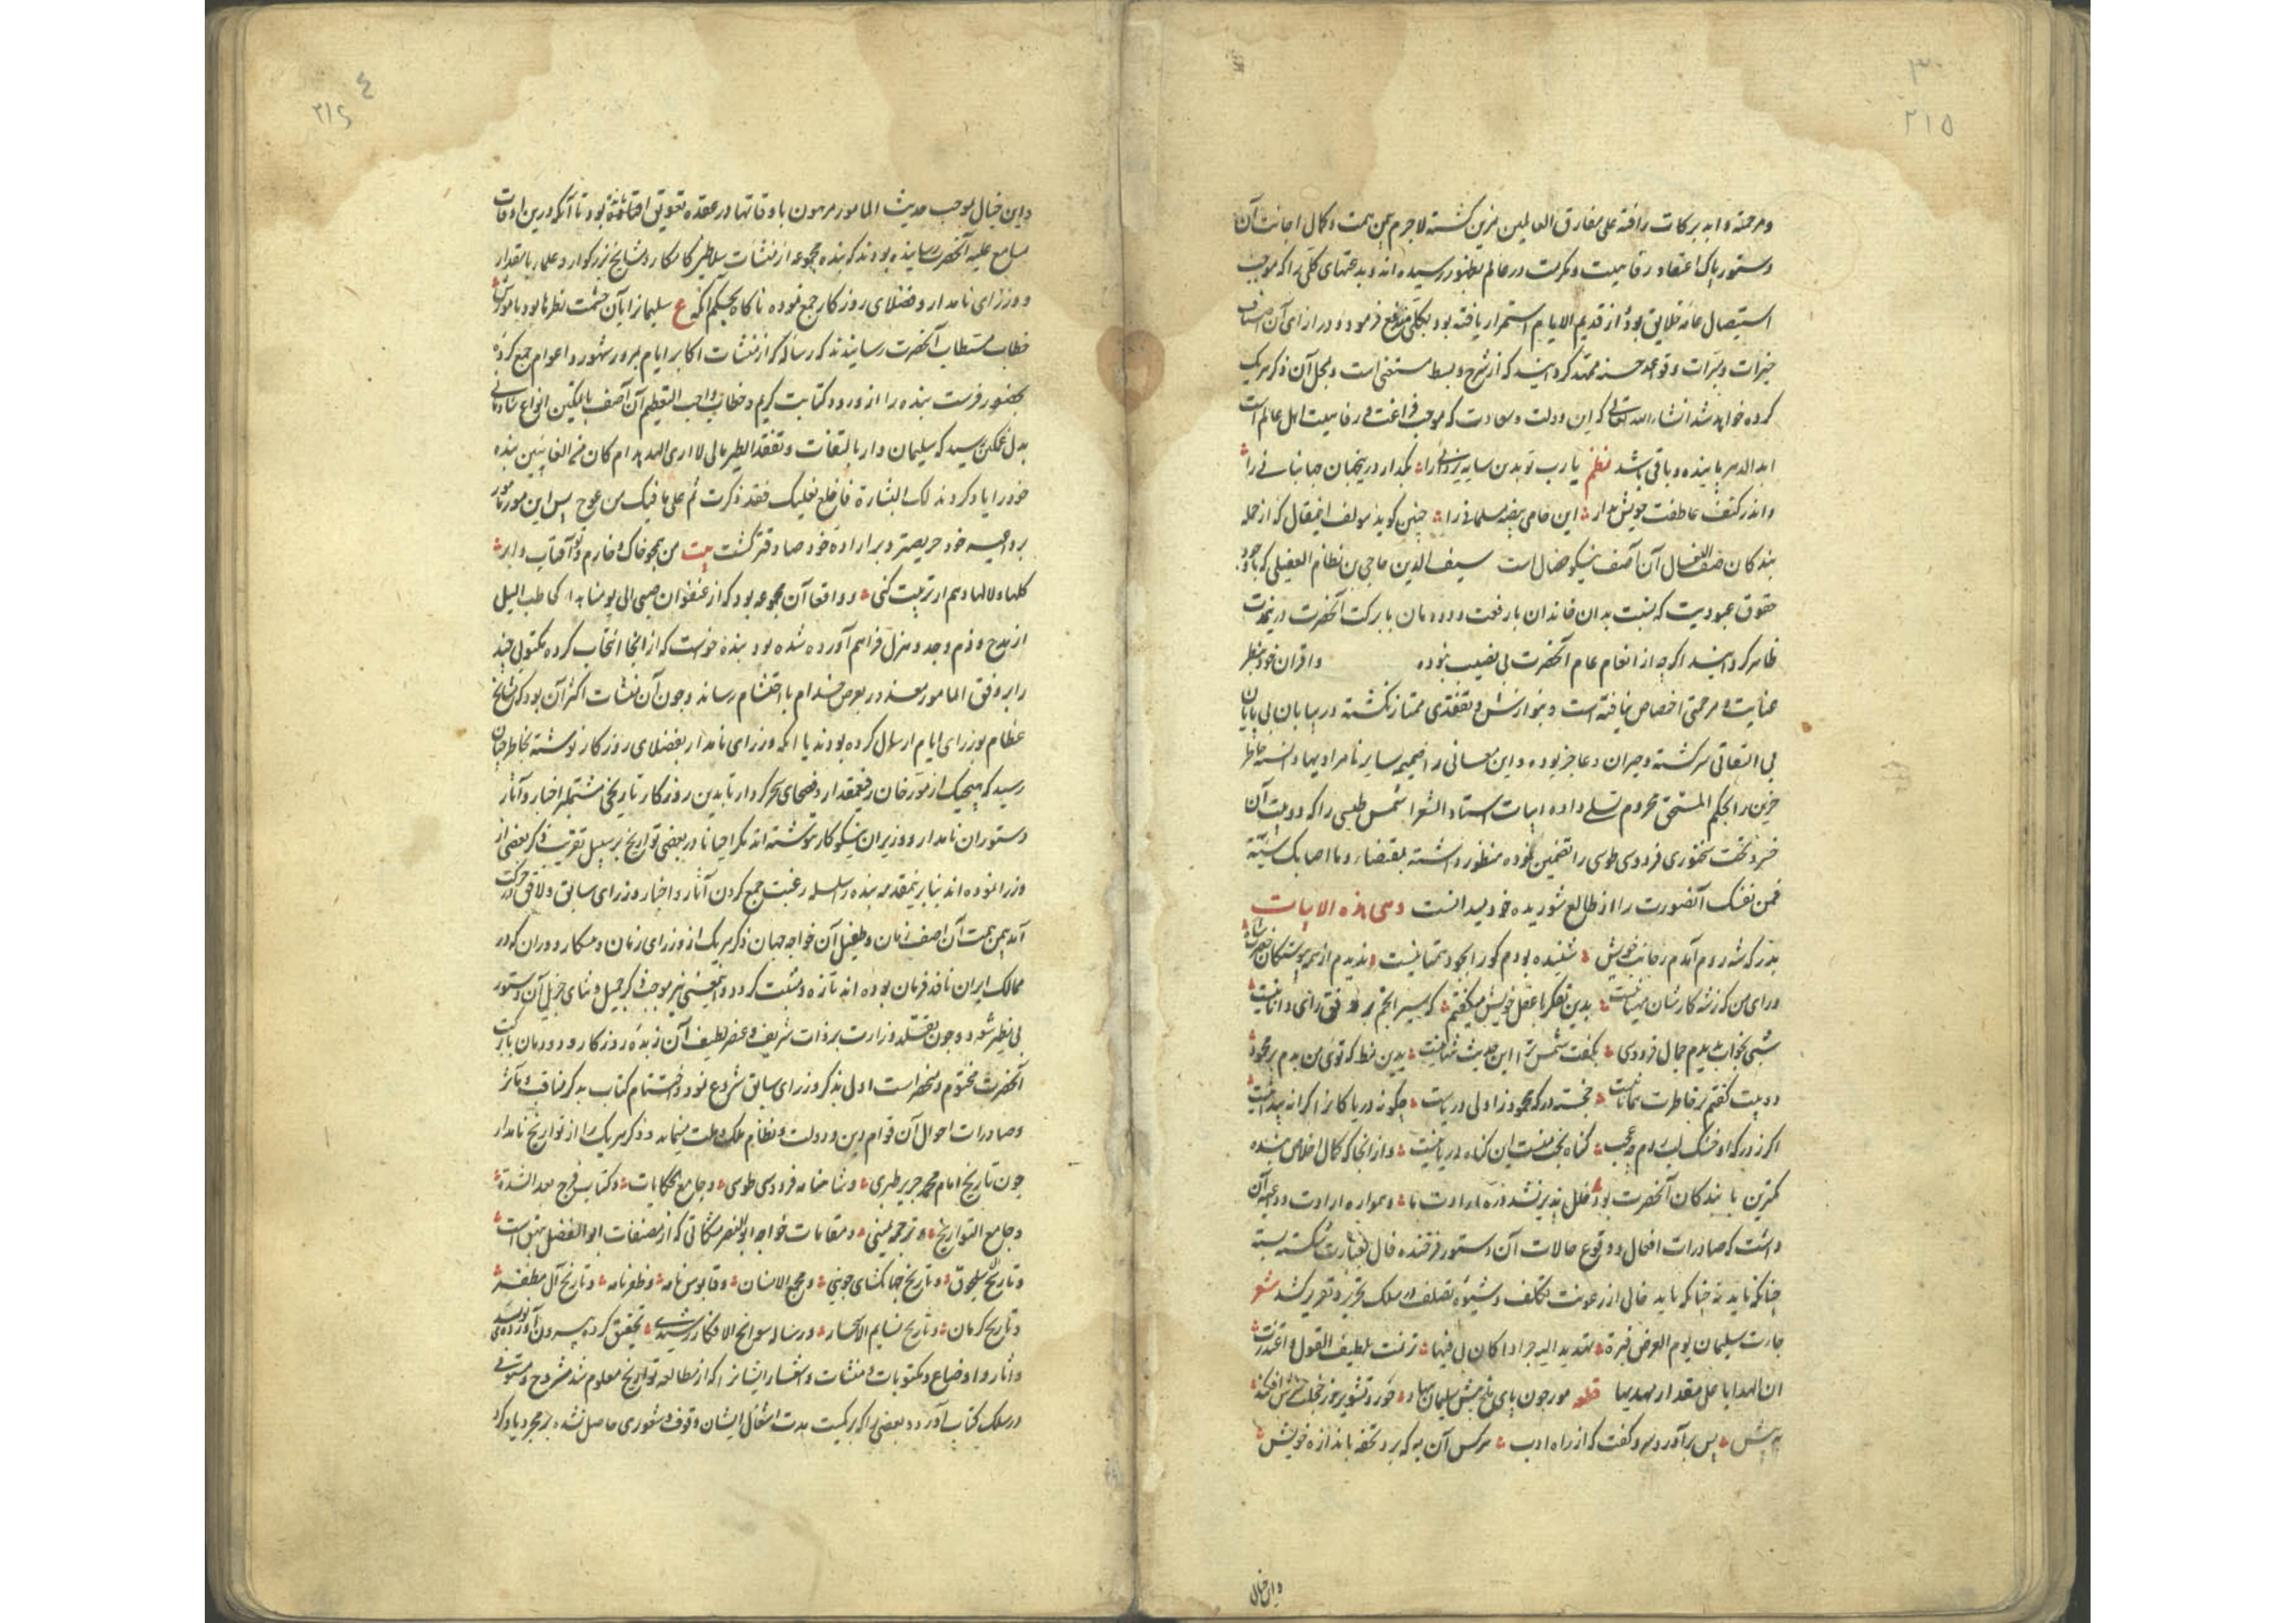 ۳
۲۱۵
و مرحمته و ابد برکات رافته علی مفارق العالمین مزین کشته لاجرم بیمن همت و کمال آن
دستور پاک اعتقاد رفاهیت و در عالم بظهور رسیده اند و بدعتهای کلی را که موجب
استیصال عامه خلایق بود و از قدیم الایام استمرار یافته بود بکلی مندفع فرمود و در ازای آن اصناف
خیرات و مبرات و قواعد حسنه ممهد کردانید که از شرح و بسط مستغنی است و محل آن ذکر هر یک
کرده خواهد شد انشاء الله تعالی که این دولت و سعادت که موجب فراغت و رفاهیت اهل عالم است
ابد الدهر پاینده و باقی باشد نظم یا رب تو بدین سایه یزدانی را بکذار درین جهان جهانبانی را
واندر کنف عاطفت خویش بدار این حامی بیضه مسلمانی را چنین کوید مولف این مقال که از جمله
بندکان آن آصف نیکو خصال است سیف الدین حاجی بن نظام العقیلی که با وجود
حقوق عبودیت که نسبت بدان خاندان با رفعت و دودمان با برکت آنحضرت در
ظاهر کردانید اکرچه از انعام عام آنحضرت بی نصیب نبوده و اقران خود بنظر
عنایت و مرحمتی اختصاص نیافته است و بنوازش و تفقدی ممتاز نکشته در بیابان بی پایان
بی التفاتی سرکشته و حیران و عاجز بوده و این معانی را ضمیمه سایر نامرادیها دانسته خاطر
حزین را بحکم المستحق محروم تسلی داده ابیات استاد الشعرا شمس طبسی را که دو بیت آن
خسرو تخت سخنوری فردوسی طوسی را تضمین نموده منظور داشته بمقتضاء و ما اصابک من سیئة
فمن نفسک آنصورت را از طالع شوریده خود میدانست و هی هذه الابیات
بزرک شه ز درم آمدم خویش شنیده بودم کو را بجود همتا نیست ندیدم از همه پیوستکان حضرت شاه
ورای من که ز شه کارشان مهیا نیست بدین تفکر با عقل خویش میکفتم که سیر انجم بر وفق رای دانا نیست
شبی بخواب بدیدم جمال فردوسی بکفت شمس ترا این حدیث نیست بدین نمط که توی من بدم بر محمود
دو بیت کفتم بر خاطرت همانا نیست خجسته درکه محمود زاولی دریاست چکونه دریا کانرا کرانه پیدا نیست
اکر ز درکه او خشک لب شدم چه عجب کناه بخت منست این کناه دریا نیست و از آنجا که کمال اخلاص بنده
کمترین با بندکان آنحضرت بود خلل پذیر نشد ذره ارادت ما و همواره ارادت و داعیه آن
داشت که صادرات افعال و وقوع حالات آن دستور فرخنده فال بعبارت شکسته بسته
چنانکه باید نه چنانکه باید خالی از رعونت تکلف و شیوه تصلف در سلک تحریر و تقریر کشد شعر
جاءت سلیمان یوم العرض قبرة تهدی الیه جرادا کان فی فیها ترنمت بلطیف القول و اعتذرت
ان الهدایا علی مقدار مهدیها قطعه مور چون پای ملخ پیش سلیمان بنهاد خورد تشویر
پس برآورد سر و کفت که از راه ادب هر کس آن به که برد تحفه باندازه خویش
و این خیال
٤
۲۱٤
و این خیال بموجب حدیث الامور مرهون باوقاتها در عقده تعویق افتاده بود تا آنکه درین اوقات
مسامع علیه آنحضرت رسانیده بودند که بنده مجموعه از منشآت سلاطین کامکار و مشایخ بزرکوار و علماء با مقدار
و وزرای نامدار و فضلای روزکار جمع نموده ناکاه بحکم آنکه ع سلیمان را با آن حشمت نظرها بود با مورش
خطاب مستطاب آنحضرت رسانیدند که رساله که از منشآت اکابر ایام بمرور شهور و اعوام جمع کرده
بحضور فرست بنده را از ورود کتابت کریم و خطاب واجب التعظیم آن آصف با تمکین انواع شادمانی
بدل غمکین رسید که سلیمان وار بالتفات و تفقد الطیر مالی لا اری الهدهد ام کان من الغائبین بنده
خود را یاد کردند لک البشارة فاخلع نعلیک فقد ذکرت ثم علی ما فیک من عوج پس این مور
بر داعیه خود حریصتر و بر اراده خود صادقتر کشت بیت من همچو خاک و خارم و تو آفتاب و ابر
کلها و لالها دهم ار تربیت کنی و واقعا آن مجموعه بود که از عنفوان صبی الی یومنا هذا کحاطب اللیل
از مدح و ذم و جد و هزل فراهم آورده شده بود بنده خواست که از آنجا انتخاب کرده مکتوبی چند
را بر وفق المامور معذور بعرض خدام با احتشام رساند و چون آن منشآت اکثر آن بود که مشایخ
عظام بوزرای ایام ارسال کرده بودند یا آنکه وزرای نامدار بفضلای روزکار نوشته بخاطر چنان
رسید که هیچیک از مورخان رفیع مقدار و فصحای سحر کردار تا بدین روزکار تاریخی مشتمل بر اخبار و آثار
دستوران نامدار و وزیران نیکو کار ننوشته اند مکر احیانا در بعضی تواریخ بر سبیل تقریب ذکر بعضی از
وزرا نموده اند بنابرین مقدمه بنده را سلسله رغبت جمع کردن آثار و اخبار وزرای سابق و لاحق در حرکت
آمد بیمن همت آن اصف زمان و طفیل آن خواجه جهان ذکر هر یک از وزرای زمان و دوران که در
ممالک ایران نافذ فرمان بوده اند تازه و مثبت کردد و این معنی نیز موجب ذکر جمیل و ثنای جزیل آن دستور
بی نظیر شود و چون تقلد وزارت بر ذات شریف و عنصر لطیف آن زبده روزکار و دودمان با برکت
آنحضرت مختوم و منحصر است اول بذکر وزرای سابق شروع نمود و اختتام کتاب به ذکر مناقب و مآثر
و صادرات احوال آن قوام دین و دولت و نظام ملک و ملت مینماید و ذکر هر یک را از تواریخ نامدار
چون تاریخ امام محمد جریر طبری و شاهنامه فردوسی طوسی و جامع الحکایات و کتاب فرج بعد الشدة
و جامع التواریخ و ترجمه یمینی و مقامات خواجه ابونصر مشکانی که از مصنفات ابو الفضل بیهقی است
و تاریخ آل سلجوق و تاریخ جهانکشای جوینی و مجمع الانساب و قابوس نامه و ظفرنامه و تاریخ آل مظفر
و تاریخ کرمان و تاریخ نسایم الاسحار و رساله سوانح الافکار رشیدی تحقیق کرده بیرون
و آثار و اوضاع و مکتوبات و منشآت و اشعار ایشانرا که از مطالعه تواریخ معلوم شد مشروح و مستوفی
در سلک کتاب آورد و بعضی را که بر کمیت مدت اشغال ایشان وقوف و شعوری حاصل نشده بمجرد یاد کرد